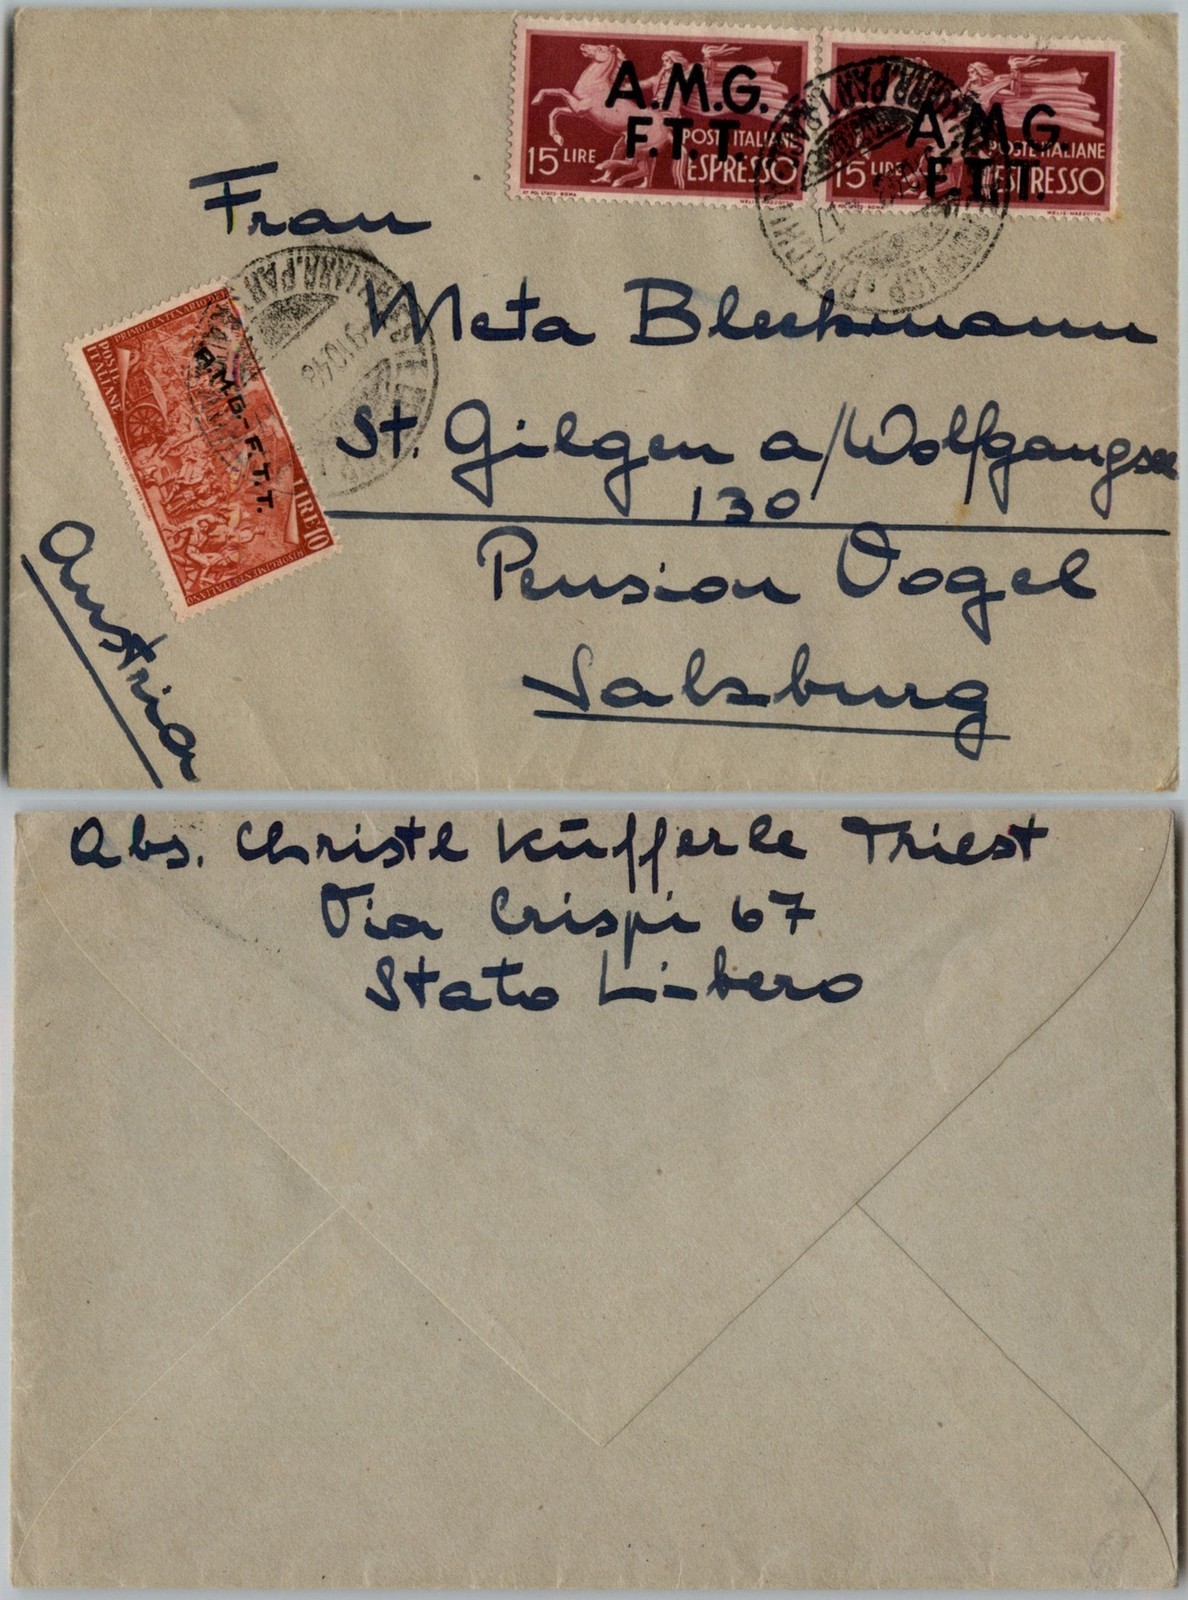 A.M.G.
F.T.T.
POSTE ITALIANE
15 LIRE ESPRESSO
A.M.G.
F.T.T.
POSTE ITALIANE
15 LIRE ESPRESSO
Frau
Meta Bleckmann
St. Gilgen a/Wolfgangsee
130
Pension Vogel
Salzburg
Austria
PRIMO CENTENARIO DEL
RISORGIMENTO ITALIANO
POSTE
ITALIANE
A.M.G.-F.T.T.
LIRE 10
10.48
Abs. Christl Küfferle Triest
Via Crispi 67
Stato Libero